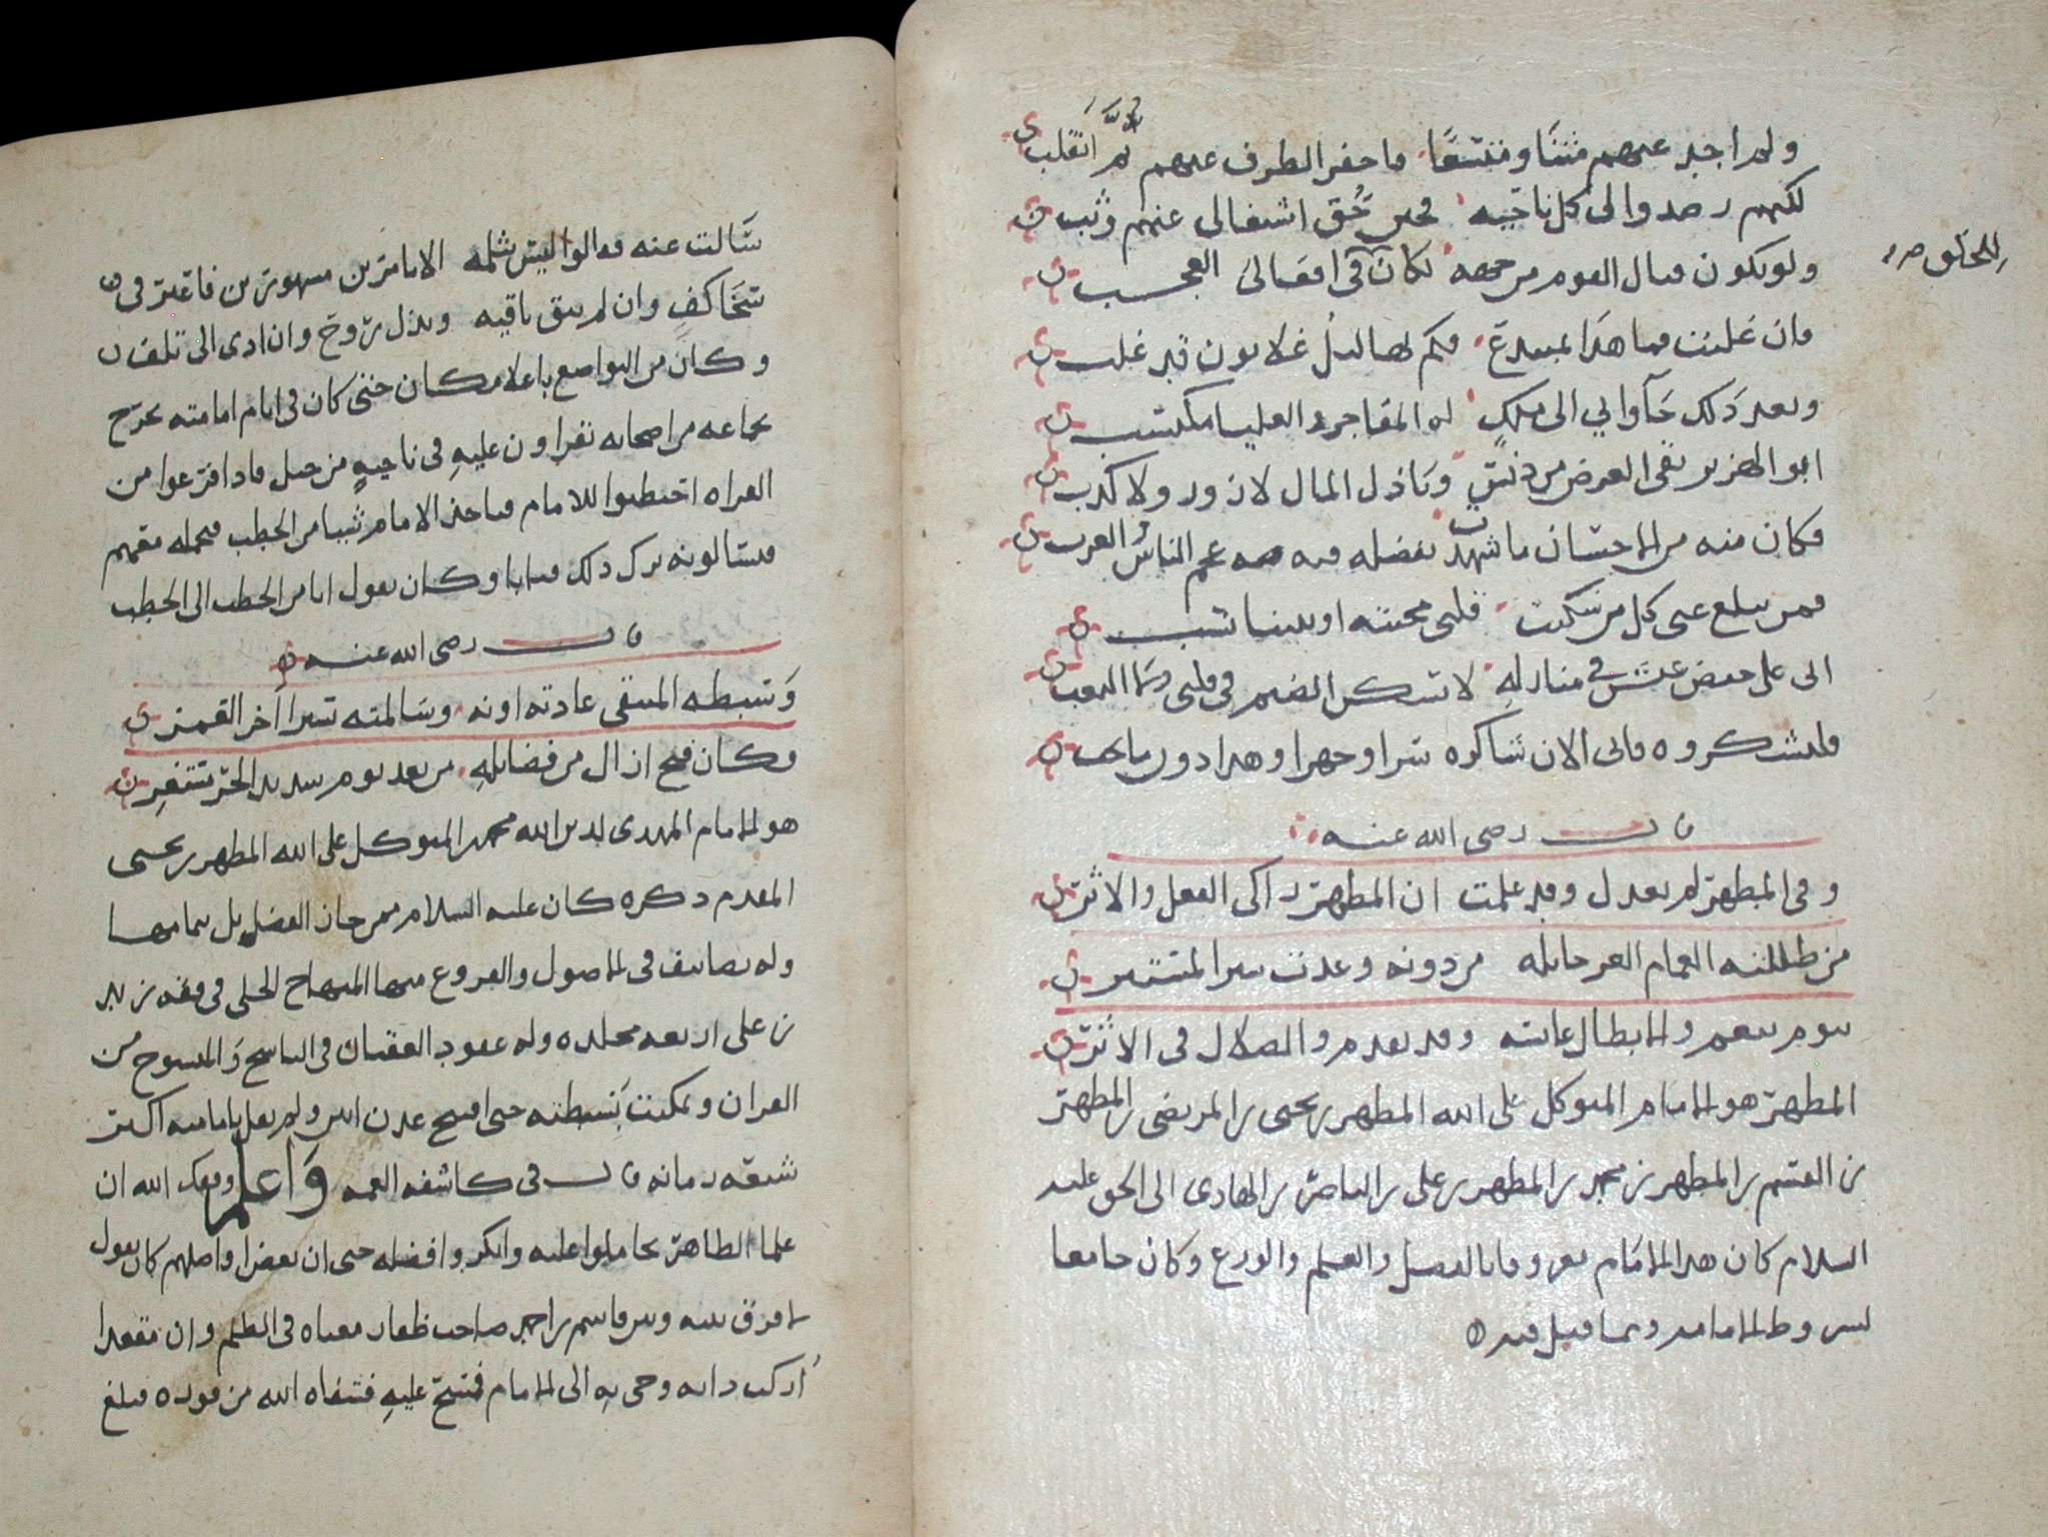 ولم اجد عنهم مثنا ومتسعا ما حفر الطرف عنهم ثم انقلب
لكنهم رصدوا لي كل ناحيه فحين حق اشتغالي عنهم وثب
ولو يكون قتال القوم من جهه لكان في افعالي العجب
للخلق
وان غلبت فما هذا بمبتدع فكم لها ليل غلابون قد غلب
وبعد ذلك جاوا بي الى ملك له المفاجر والعليا مكتسب
ابو الهزبر نقي العرض من دنس وباذل المال لا زور ولا كذب
فكان منه من الاحسان ما شهدت بفضله فيه عجم الناس والعرب
فمن يبلغ عني كل من سكنت قلبي محبته او بيننا نسب
اني على خفض عيش في منازله لا تسكن الضيم في قلبي ولا التعب
فليشكروه فاني الان شاكره سرا وجهرا وهذا دون ما يجب
قال رضي الله عنه
وفي المطهر لم يعدل وقد علمت ان المطهر زاكي الفعل والاثر
من ظللته الغمام الغر حايله من دونه وغدت سترا لمستتر
يوم تنعم والابطال عابسه وقد تقدم والضلال في الاثر
المطهر هو الامام المتوكل على الله المطهر بن يحيى بن المرتضى بن المطهر
بن القسم بن المطهر بن محمد بن المطهر بن علي بن الناصر بن الهادي الى الحق عليه
السلام كان هذا الامام معروفا بالفضل والعلم والورع وكان جامعا
لشروط الامامه ومما قيل فيه
سالت عنه قالوا ليس شمله الا بامرين مشهورين فاعتبر في
سخا كف وان لم يبق باقيه وبذل روح وان ادى الى تلف
وكان من التواضع باعلا مكان حتى كان في ايام امامته يخرج
بجماعه من اصحابه يقراون عليه في ناحيه من جبل فاذا فرغوا من
القراه احتطبوا للامام فياخذ الامام شيا من الحطب فيحمله معهم
فيسالونه ترك ذلك فيابا وكان يقول انا من الحطب الى الحطب
قال رضي الله عنه
وسبطه المنتقى عادته اونه وسالمته سرا اخر القمر
وكان فتح ازال من فضايله من بعد يوم شديد الحر مستعر
هو الامام المهدي لدين الله محمد بن المتوكل على الله المطهر بن يحيى
المقدم ذكره كان عليه السلام ممن حاز الفضايل بتمامها
وله تصانيف في الاصول والفروع منها المنهاج الجلي في فقه زيد
بن علي اربعه مجلده وله عقود العقيان في الناسخ والمنسوخ من
القران وتمكنت بسطته حتى افتتح عدن ابين ولم يقل بامامته اكثر
شيعه زمانه قال في كاشفه الغمه واعلم وفقك الله ان
علما الظاهر تحاملوا عليه وانكروا فضله حتى ان بعض افاضلهم كان يقول
لا فرق بينه وبين قاسم بن احمد صاحب ظفار معناه في الظلم وان مقعدا
اركب دابه وجي به الى الامام فمسح عليه فشفاه الله من فوره فبلغ